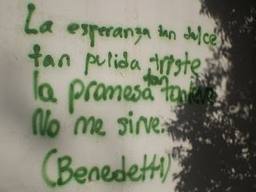 La esperanza tan dulce
tan pulida triste
la promesa tan
No me sirve.
(Benedetti)